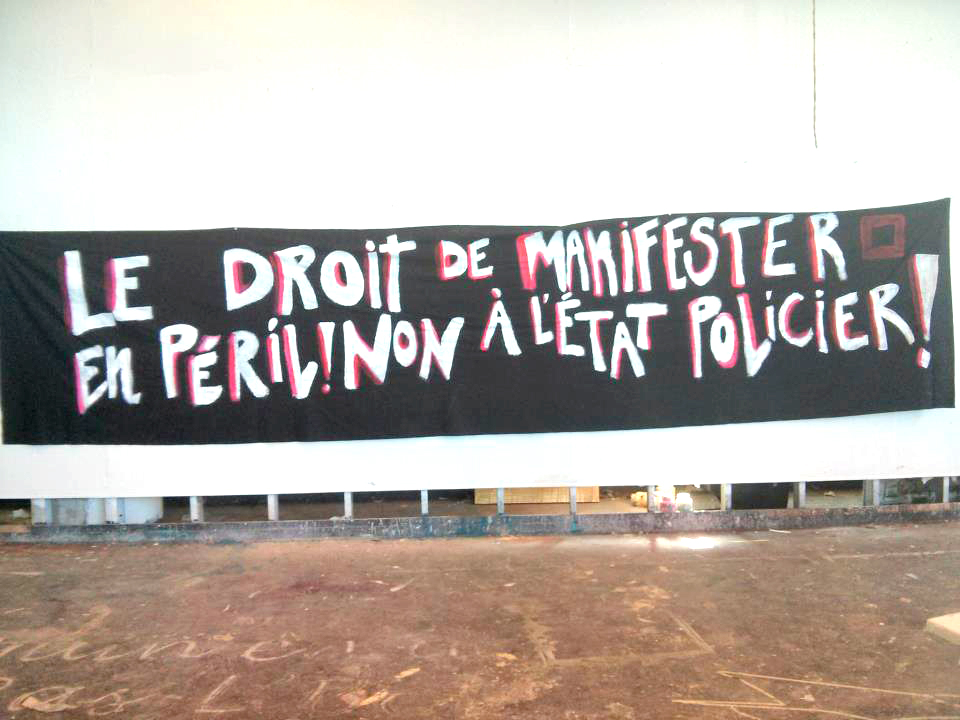 LE DROIT DE MANIFESTER
EN PÉRIL! NON À L'ÉTAT POLICIER!